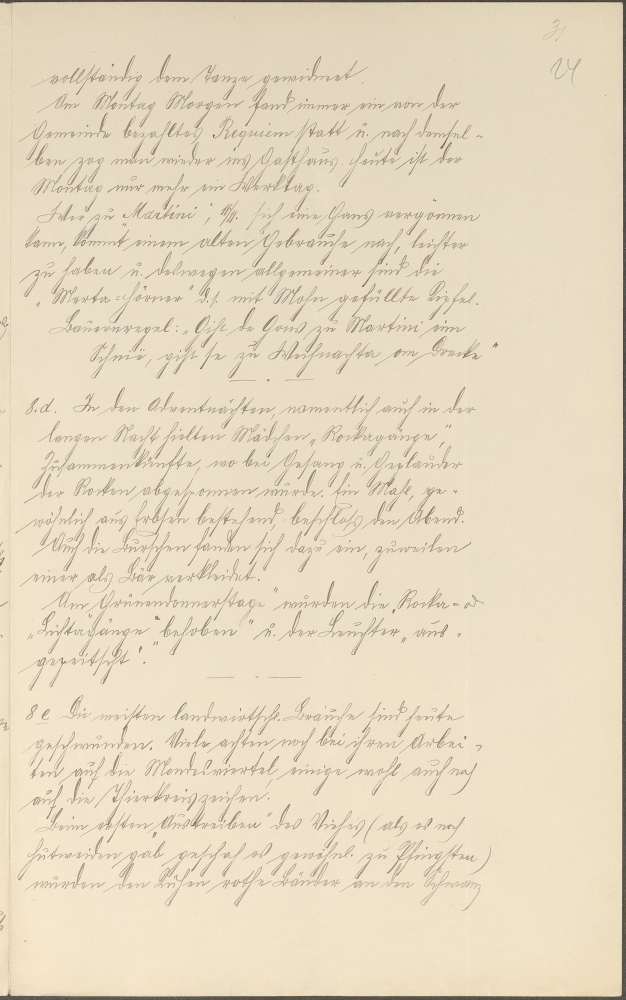 3.
24
vollständig dem Tanze gewidmet.
Am Montag Morgen fand immer ein von der
Gemeinde bezahltes Requiem statt u. nach demsel-
ben zog man wieder ins Gasthaus. Heute ist der
Montag nur mehr ein Werktag.
Wer zu "Martini", sich eine Gans vergönnen
kann, kommt einem alten Gebrauche nach, leichter
zu haben u. deswegen allgemeiner sind die
"Merta-Hörner" d. s. mit Mohn gefüllte Kipfel.
Bauernregel: "Geht de Gons zu Martini im
Schnië, giht se zu Weihnachta om Drecke"
8.d. In den Adventnächten, namentlich auch in der
langen Nacht hielten Mädchen "Rockagänge",
Zusammenkünfte, wo bei Gesang u. Geplauder
der Rocken abgesponnen wurde. Ein Mahl, ge-
wöhnlich aus Erbsen bestehend, beschloß den Abend.
Auch die Burschen fanden sich dazu ein, zuweilen
einer als Bär verkleidet.
Am "Grünendonnerstage" wurden die Rocka- od
"Lichtagänge" behoben" u. der Leuchter "aus-
gepeitscht".
8 e Die meisten landwirtschl. Bräuche sind heute
geschwunden. Viele achten noch bei ihren Arbei-
ten auf die Mondesviertel, einige wohl auch noch
auf die Thierkreiszeichen.
Beim ersten "Austreiben" des Viehes (als es noch
Hutweiden gab geschah es gewöhnl. zu Pfingsten)
wurden den Kühen rothe Bänder an den Schwanz